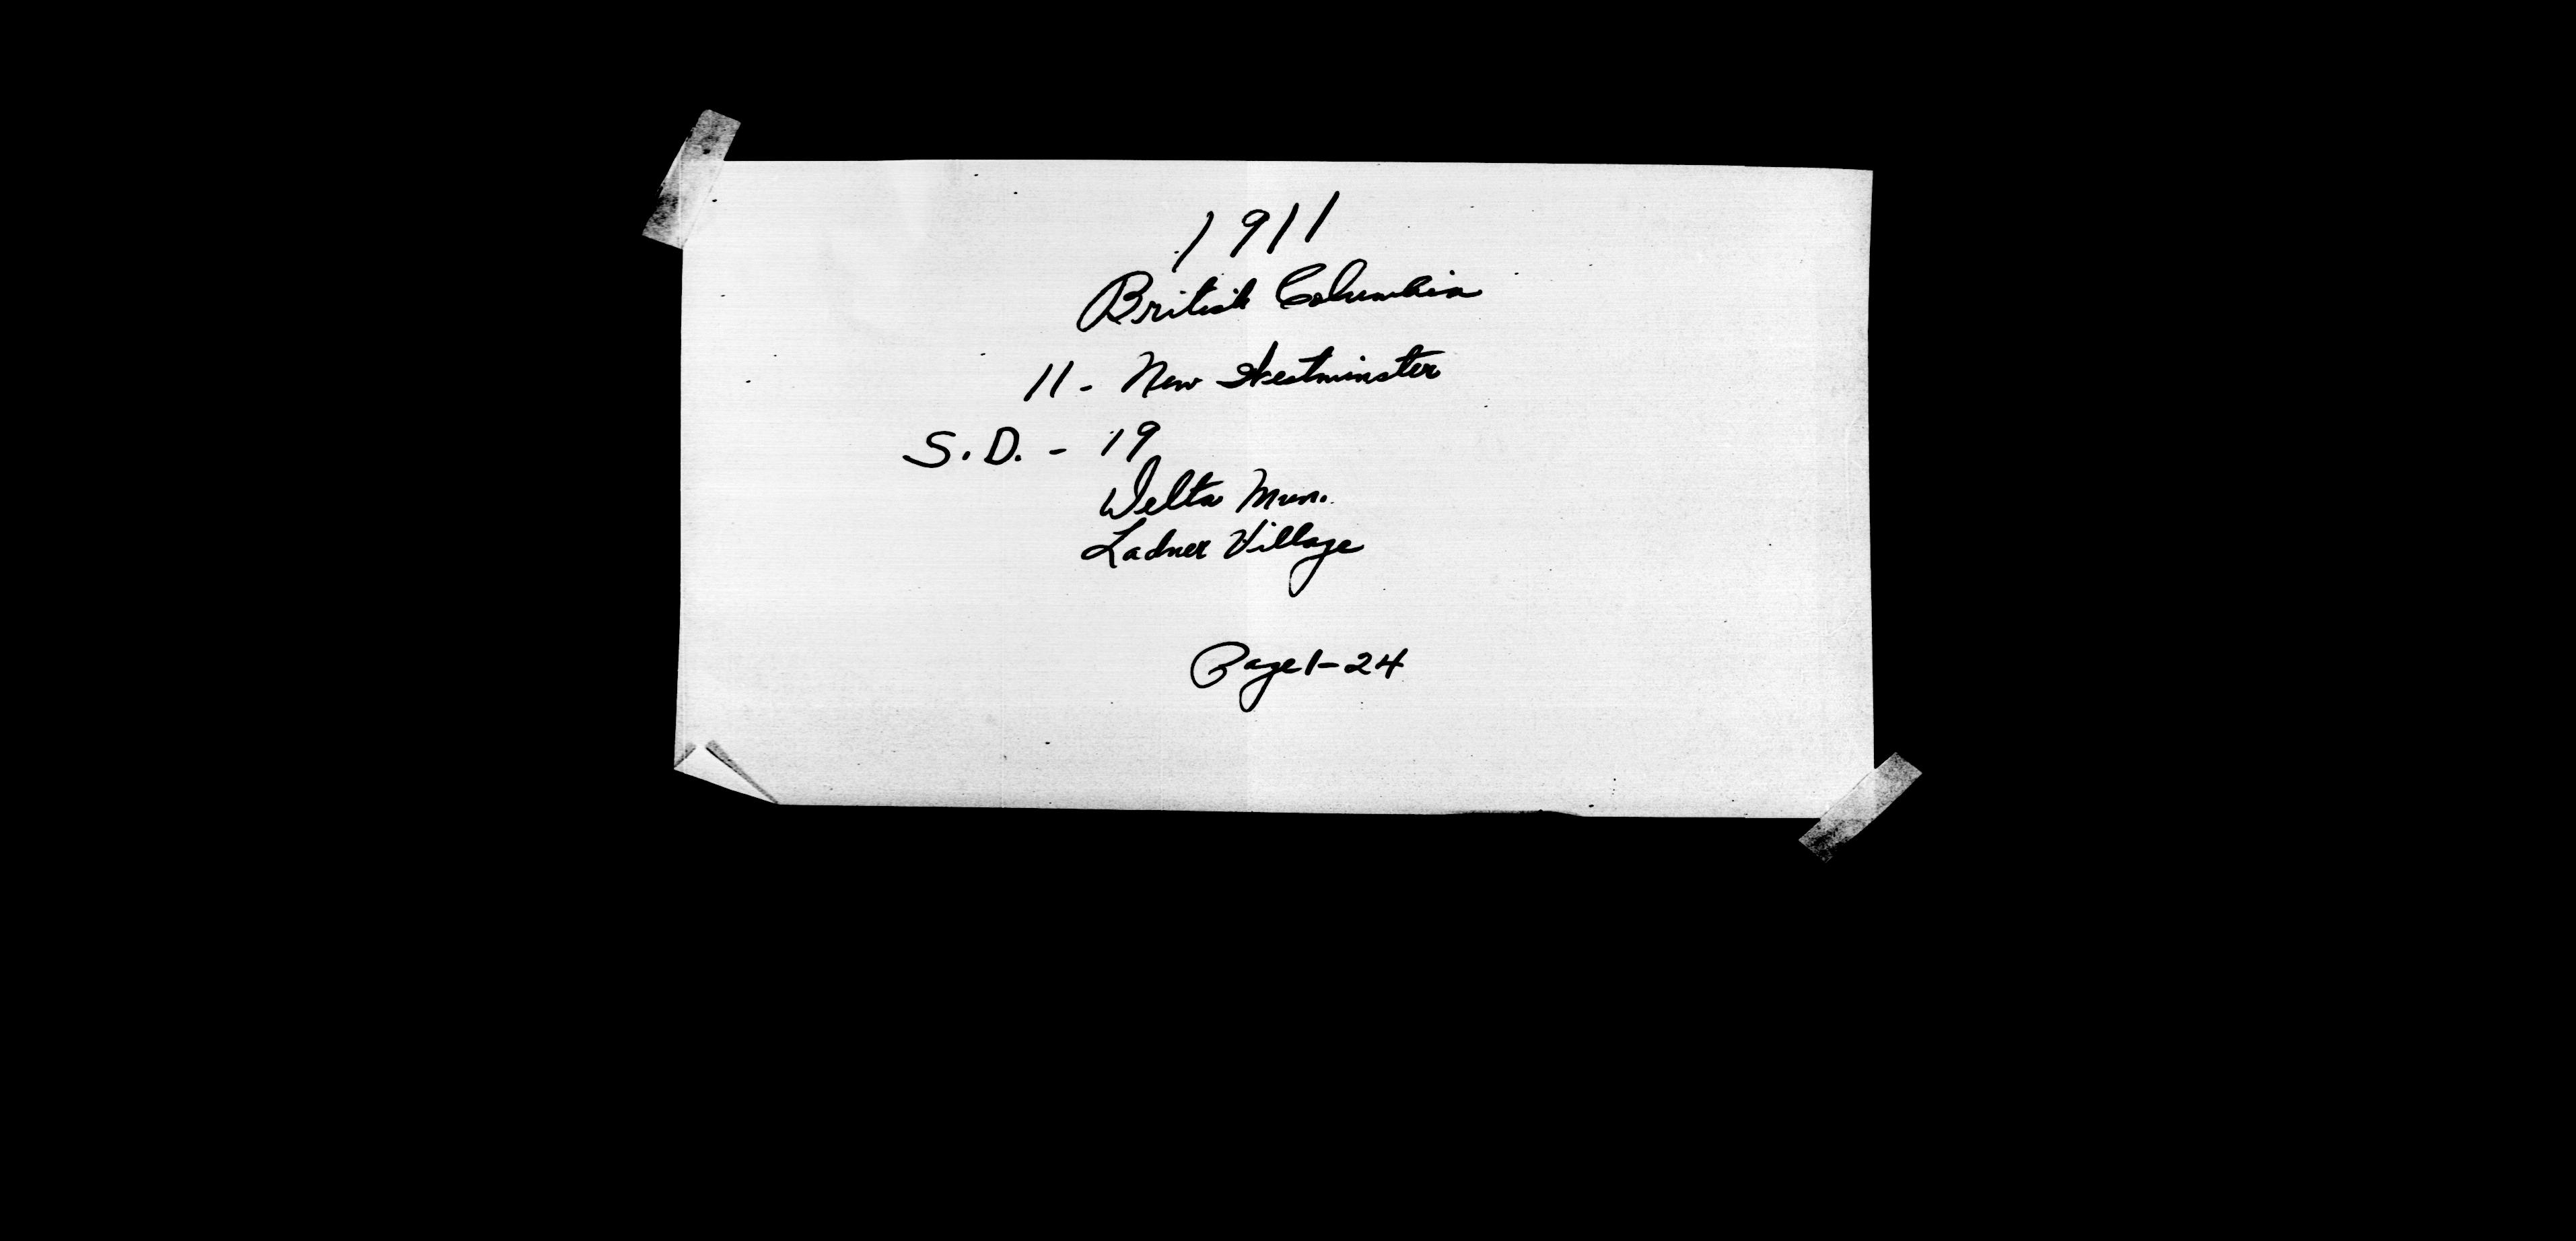 1911
British Columbia
11 - New Westminster
S.D. - 19
Delta Mun.
Ladner Village
Page 1-24